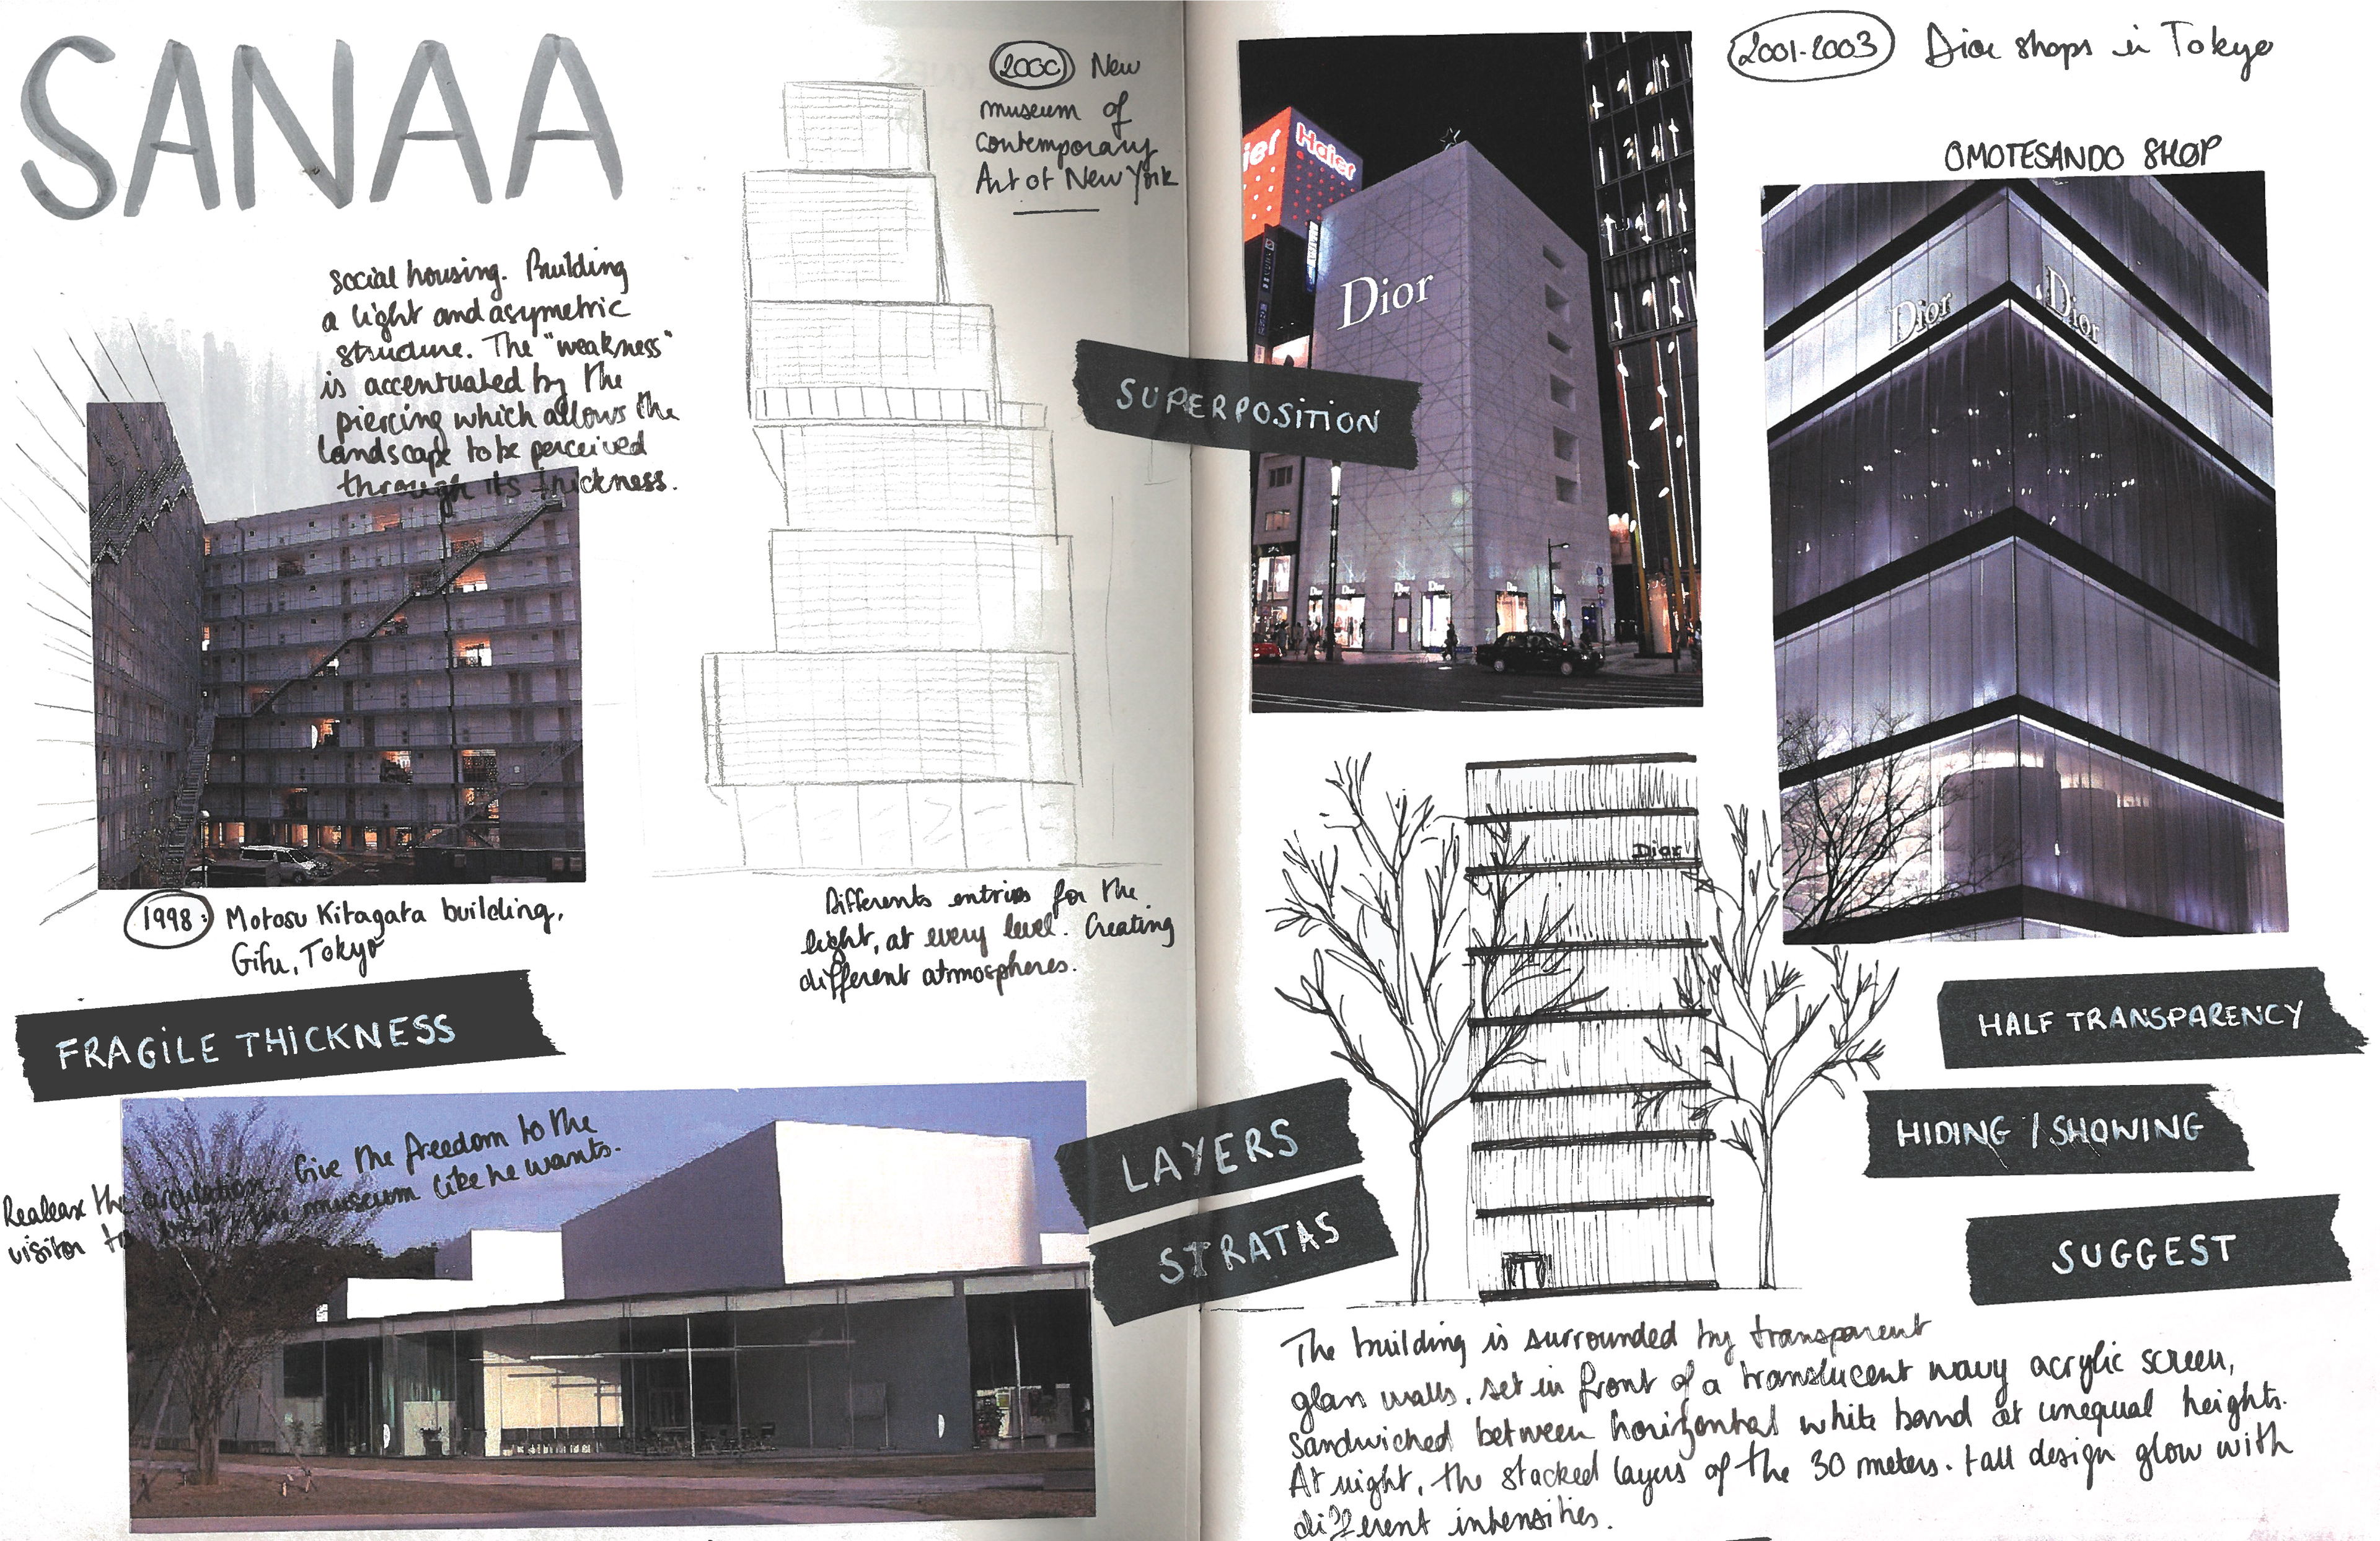 SANAA
social housing. Building
a light and asymetric
structure. The "weakness"
is accentuated by the
piercing which allows the
landscape to be perceived
through its thickness.
1998: Motosu Kitagata building,
Gifu, Tokyo
FRAGILE THICKNESS
2000 New
museum of
contemporary
Art of New York
Differents entries for the
light, at every level. Creating
different atmospheres.
Realeax the circulation. Give the freedom to the
visitor to visit the museum like he wants.
SUPERPOSITION
LAYERS
STRATAS
2001-2003 Dior shops in Tokyo
OMOTESANDO SHOP
Haier
Dior
Dior
Dior
Dior
Dior
Dior
HALF TRANSPARENCY
HIDING / SHOWING
SUGGEST
The building is surrounded by transparent
glass walls, set in front of a translucent wavy acrylic screen,
sandwiched between horizontal white band at unequal heights.
At night, the stacked layers of the 30 meters. tall design glow with
different intensities.